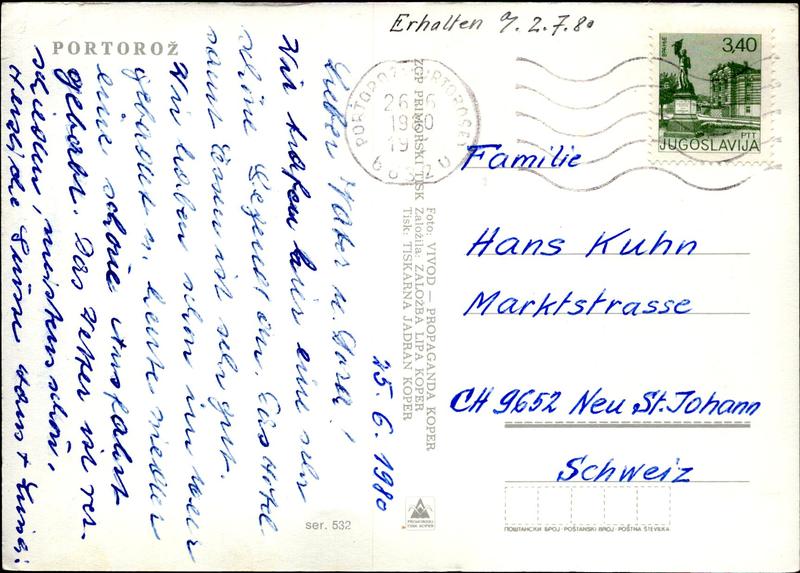 PORTOROŽ
Lieber Vater u. Dora!
Wir trafen hier eine sehr
schöne Gegend an. Das Hotel
samt Essen ist sehr gut.
Wir haben schon im Meer
gebadet u. heute wieder
eine schöne Ausfahrt
gebucht. Das Wetter ist ver-
schieden, meistens schön.
Herzliche Grüsse Hans +
25.6.1980
ser. 532
ZGP PRIMORSKI TISK
Foto: VIVOD — PROPAGANDA KOPER
Založila: ZALOŽBA LIPA KOPER
Tisk: TISKARNA JADRAN KOPER
PRIMORSKI
TISK KOPER
Erhalten 2.7.80
PORTOROŽ PORTOROSE
26.6
1980
19
66320
ВРАЊЕ
3,40
PTT
JUGOSLAVIJA
Familie
Hans Kuhn
Marktstrasse
CH 9652 Neu St. Johann
Schweiz
ПОШТАНСКИ БРОЈ · POŠTANSKI BROJ · POŠTNA ŠTEVILKA